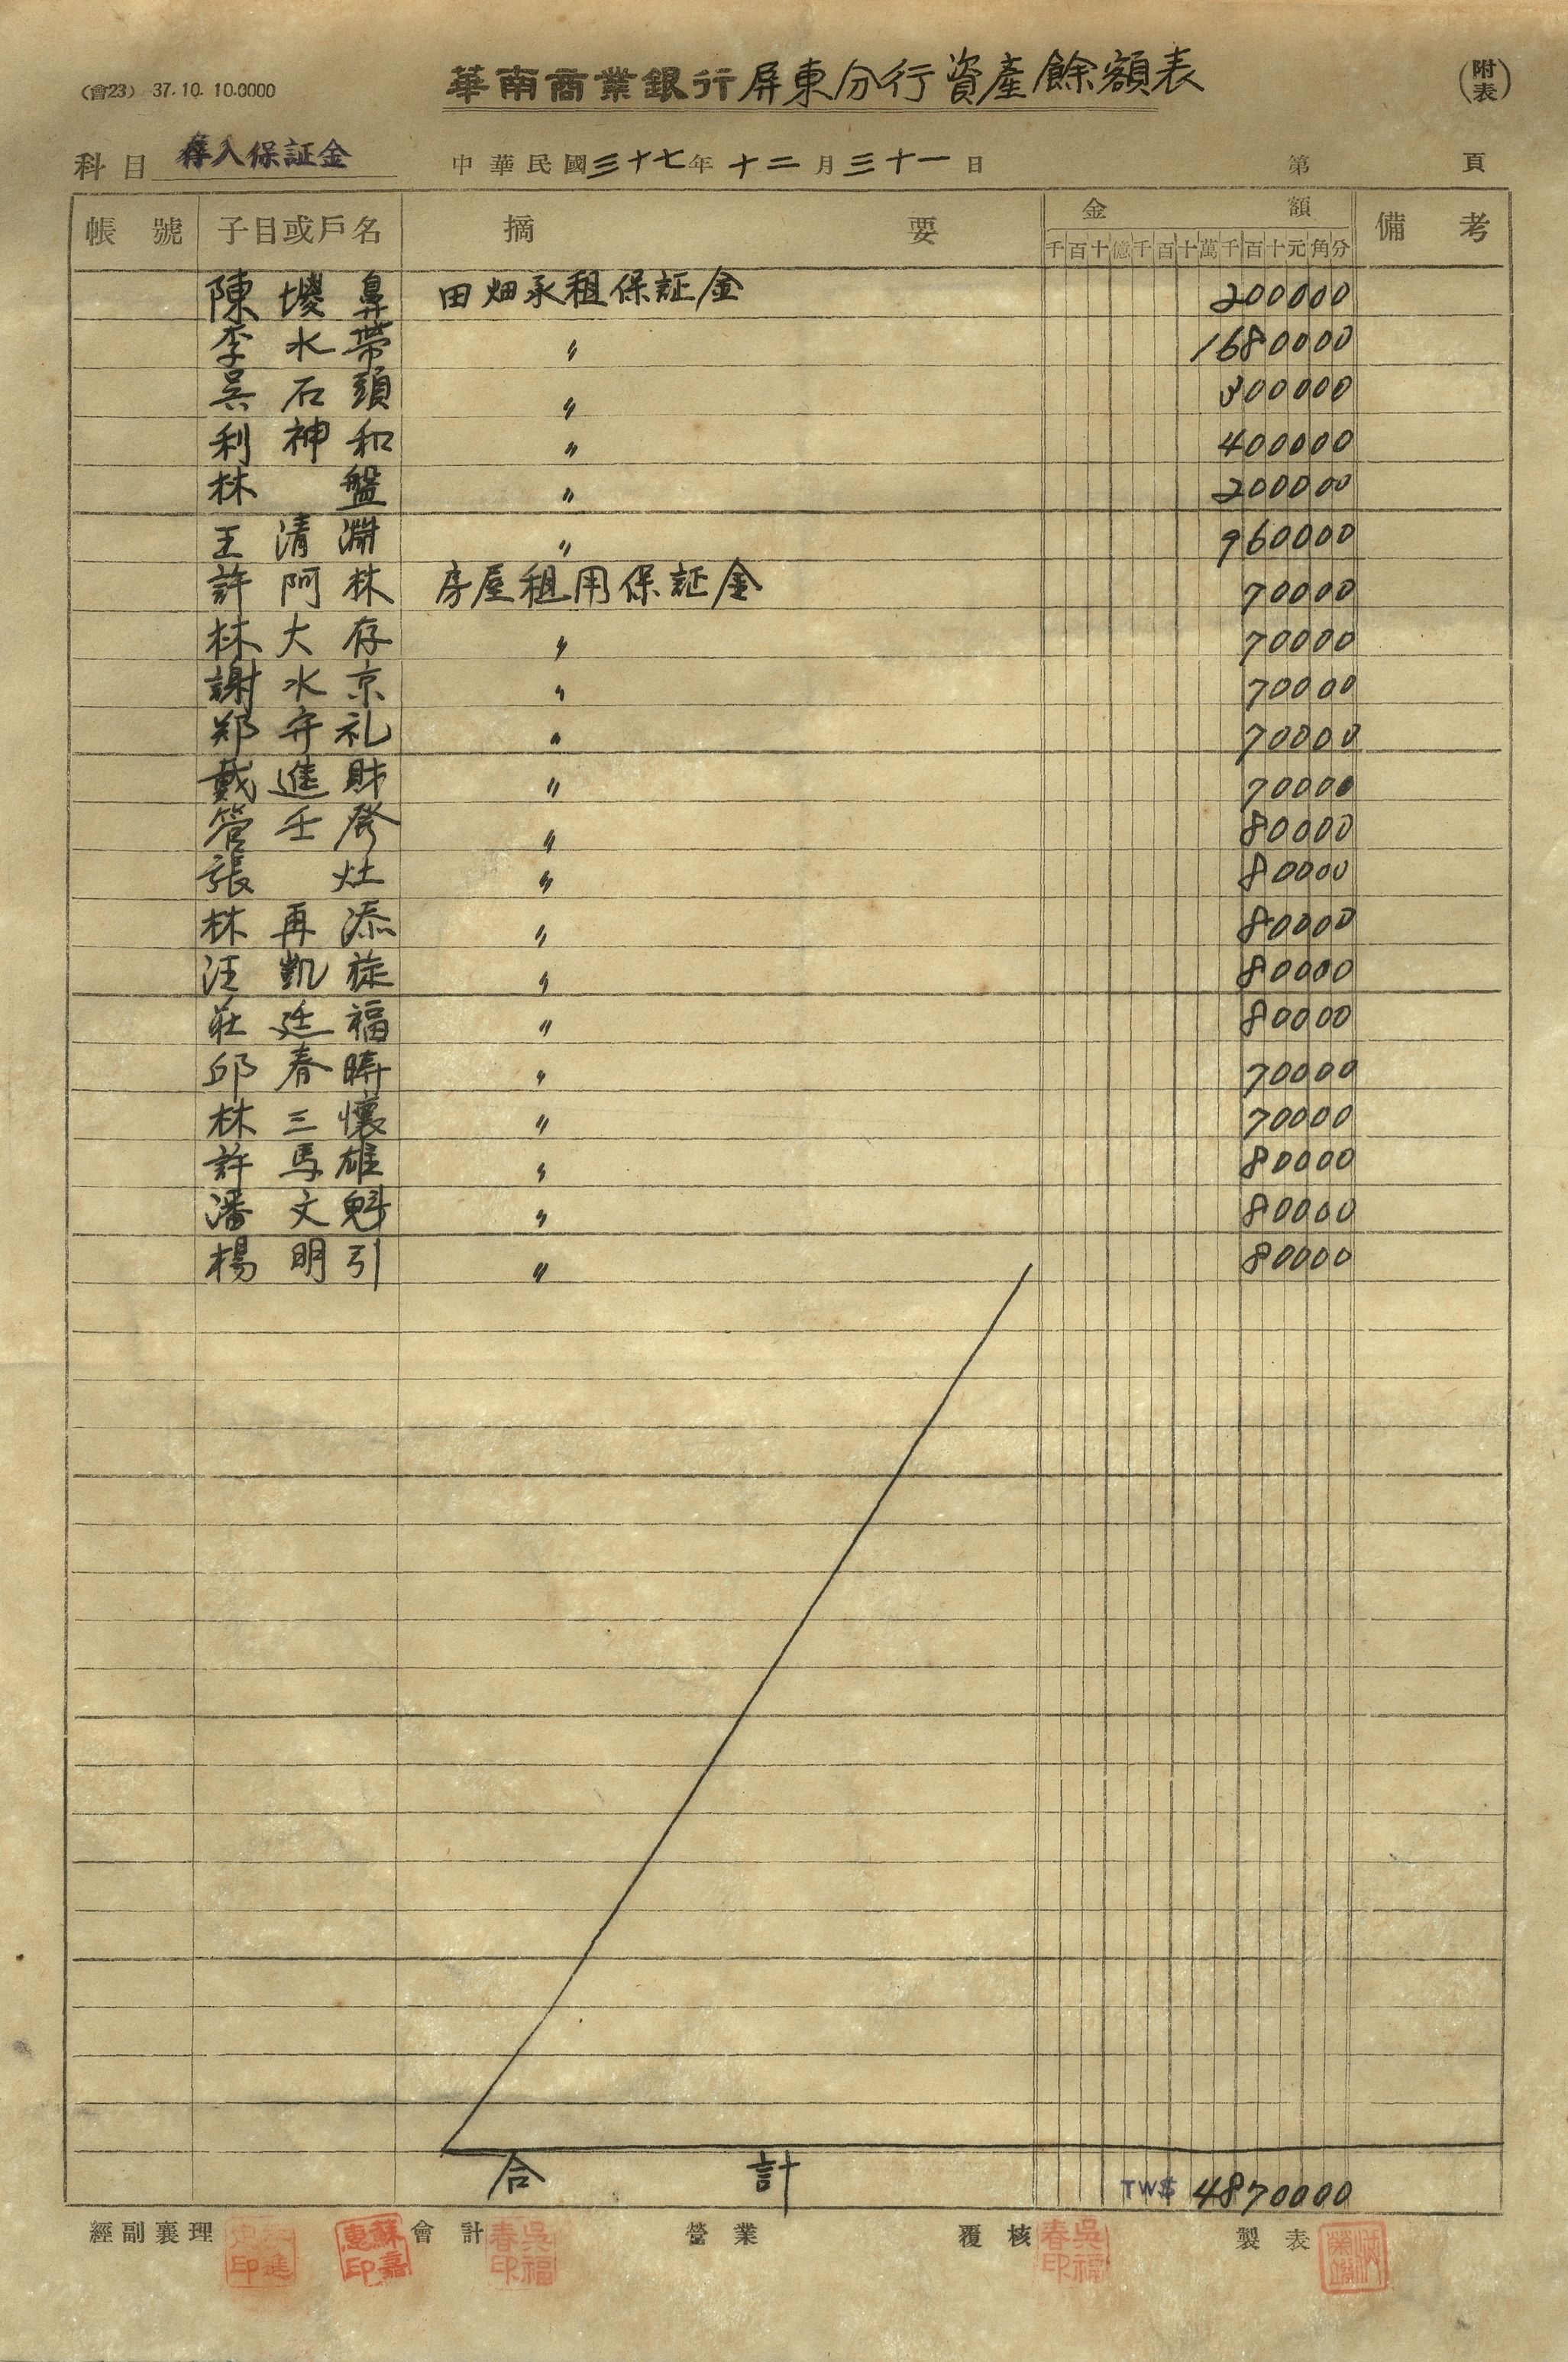 (會23) 37.10.10.0000
華南商業銀行屏東分行資產餘額表
(附表)
科目 存入保証金 中華民國三十七年十二月三十一日 第 頁
帳號 子目或戶名 摘要 金額 備考
千百十億千百十萬千百十元角分
陳 鼻 田畑承租保証金 200000
李水帶 〃 1680000
吳石頭 〃 300000
利神和 〃 400000
林盤 〃 200000
王清淵 〃 960000
許阿林 房屋租用保証金 70000
林大存 〃 70000
謝水京 〃 70000
郑守礼 〃 70000
戴進財 〃 70000
管壬發 〃 80000
張灶 〃 80000
林再添 〃 80000
汪凱旋 〃 80000
莊廷福 〃 80000
邱春 〃 70000
林三懷 〃 70000
許馬雄 〃 80000
潘文魁 〃 80000
楊明引 〃 80000
合計 TW$ 4870000
經副襄理 蘇嘉惠印 會計 吳福春印 營業 覆核 吳福春印 製表